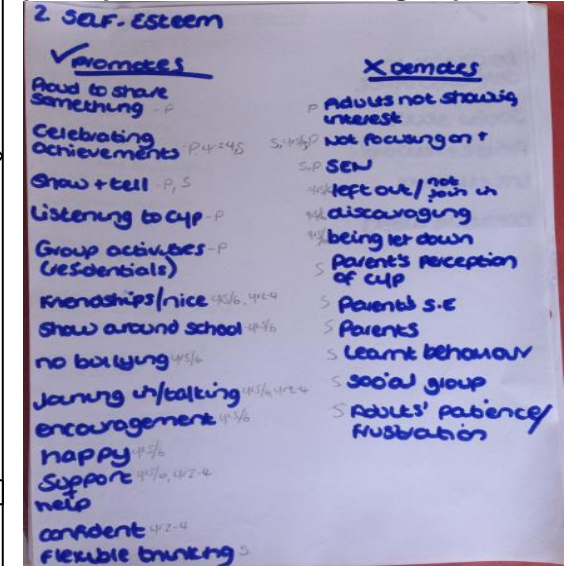 2. Self-Esteem
✓ Promotes
Proud to share
something - P
Celebrating
achievements - P, yr2-4, S
Show + tell - P, S
Listening to cyp - P
Group activities - P
(residentials)
Friendships/nice yr5/6, yr2-4
Show around school yr5/6
no bullying yr5/6
Joining in/talking yr5/6, yr2-4
encouragement yr5/6
happy yr5/6
Support yr5/6, yr2-4
+
help
confident yr2-4
flexible thinking S
X Demotes
P Adults not showing
interest
S, yr5/6, P Not focusing on +
S, P SEN
yr5/6 left out / not
join in
discouraging
yr5/6 being let down
S Parent's perception
of cyp
S Parent's S.E
S Parents
S Learnt behaviour
S social group
S Adults' patience/
frustration